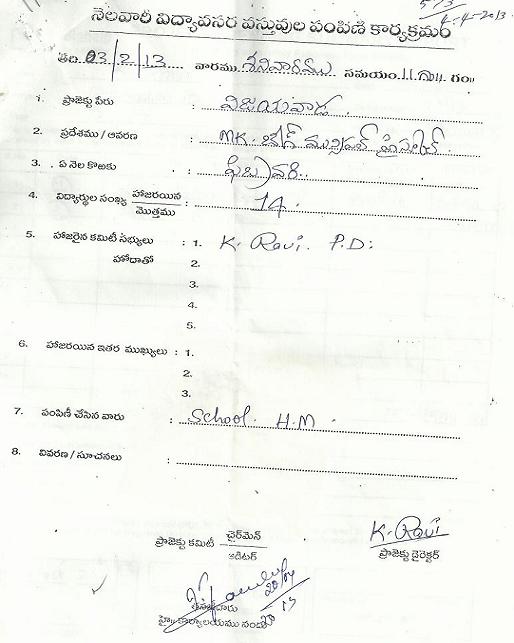 5/3
4-4-2013
నెలవారి విద్యావసర వస్తువుల పంపిణి కార్యక్రమం
తేది 03/2/13 వారము శనివారము సమయం 11 గం॥
1. ప్రాజెక్టు పేరు : విజయవాడ
2. ప్రదేశము / ఆవరణ : MK. హైస్కూల్
3. ఏ నెల కొఱకు : ఫిబ్రవరి
4. విద్యార్థుల సంఖ్య హాజరయిన / మొత్తము : 14
5. హాజరైన కమిటీ సభ్యులు : 1. K. Ravi. P.D:
హోదాతో 2.
3.
4.
5.
6. హాజరయిన ఇతర ముఖ్యులు : 1.
2.
3.
7. పంపిణీ చేసిన వారు : School. H.M.
8. వివరణ / సూచనలు :
ప్రాజెక్టు కమిటీ ఛైర్‌మెన్ / ఆడిటర్
K. Ravi
ప్రాజెక్టు డైరెక్టర్
20/04
13
కార్యాలయము నందు